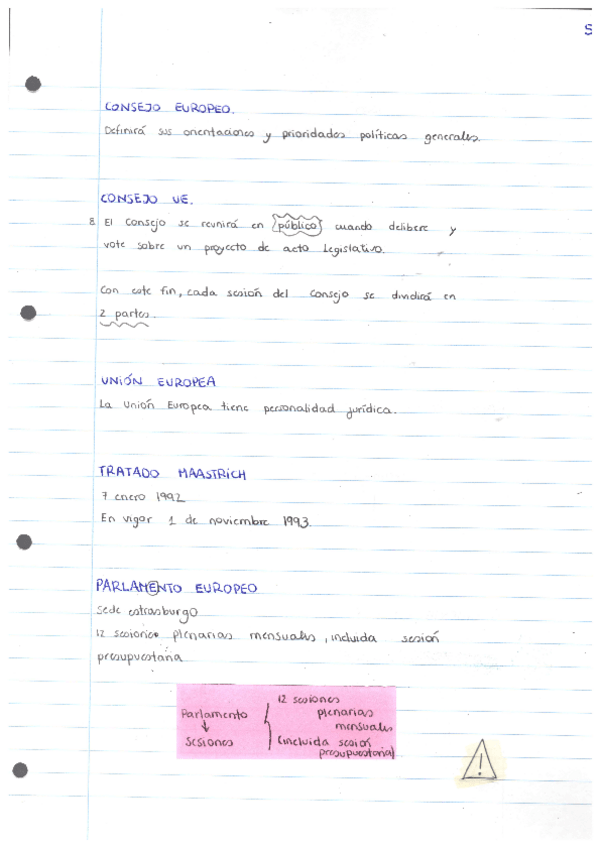 S
CONSEJO EUROPEO.
Definirá sus orientaciones y prioridades políticas generales.
CONSEJO UE.
8. El Consejo se reunirá en público cuando delibere y
vote sobre un proyecto de acto legislativo.
Con este fin, cada sesión del Consejo se dividirá en
2 partes.
UNIÓN EUROPEA
La Unión Europea tiene personalidad jurídica.
TRATADO MAASTRICH
7 enero 1992
En vigor 1 de noviembre 1993.
PARLAMENTO EUROPEO
Sede estrasburgo
12 sesiones plenarias mensuales, incluida sesión
presupuestaria
12 sesiones
Parlamento plenarias
mensuales
Sesiones (incluida sesión
presupuestaria)
!